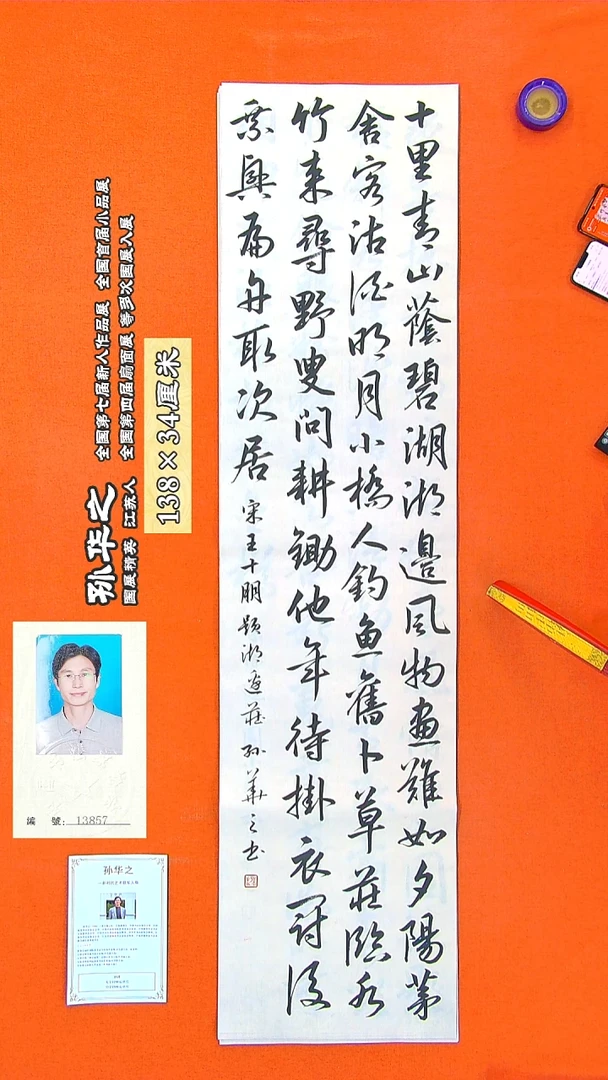 十里青山蔭碧湖湖邊風物畫難如夕陽茅
舍客沽酒明月小橋人釣魚舊卜草莊臨水
竹來尋野叟問耕鋤他年待掛衣冠後
乘興扁舟取次居 宋王十朋題湖邊莊 孙華之书
孙华之
國展精英 江苏人
全國第七届新人作品展 全國首届小品展
全國第四届扇面展 等多次國展入展
138×34厘米
編 號: 13857
孙华之